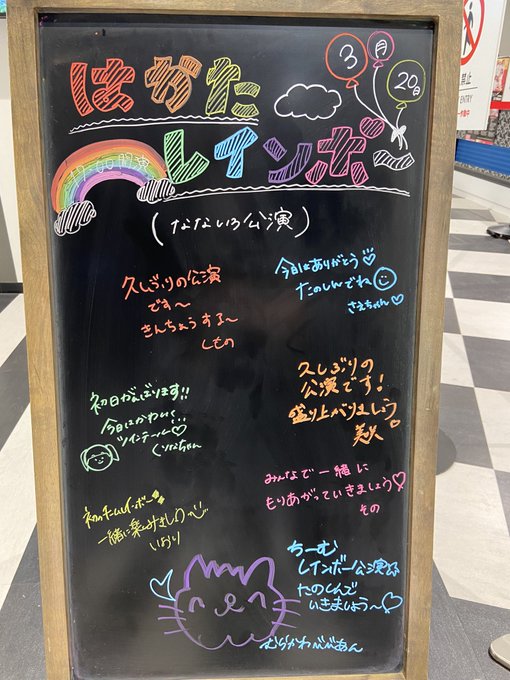 はかた
レインボー
3月20日
(なないろ公演)
久しぶりの公演
です〜
きんちょうする〜
しもの
今日はありがとう
たのしんでね
さえちゃん
初日がんばります!!
今日はかわいく
ツインテール♡
くりなちゃん
久しぶりの
公演です!
盛り上がりましょう
美久
みんなで一緒に
もりあがっていきましょう
その
一緒に楽しみましょう
いおり
ちーむ
レインボー公演
たのしんで
いきましょう〜
むらかわびびあん
ENTRY